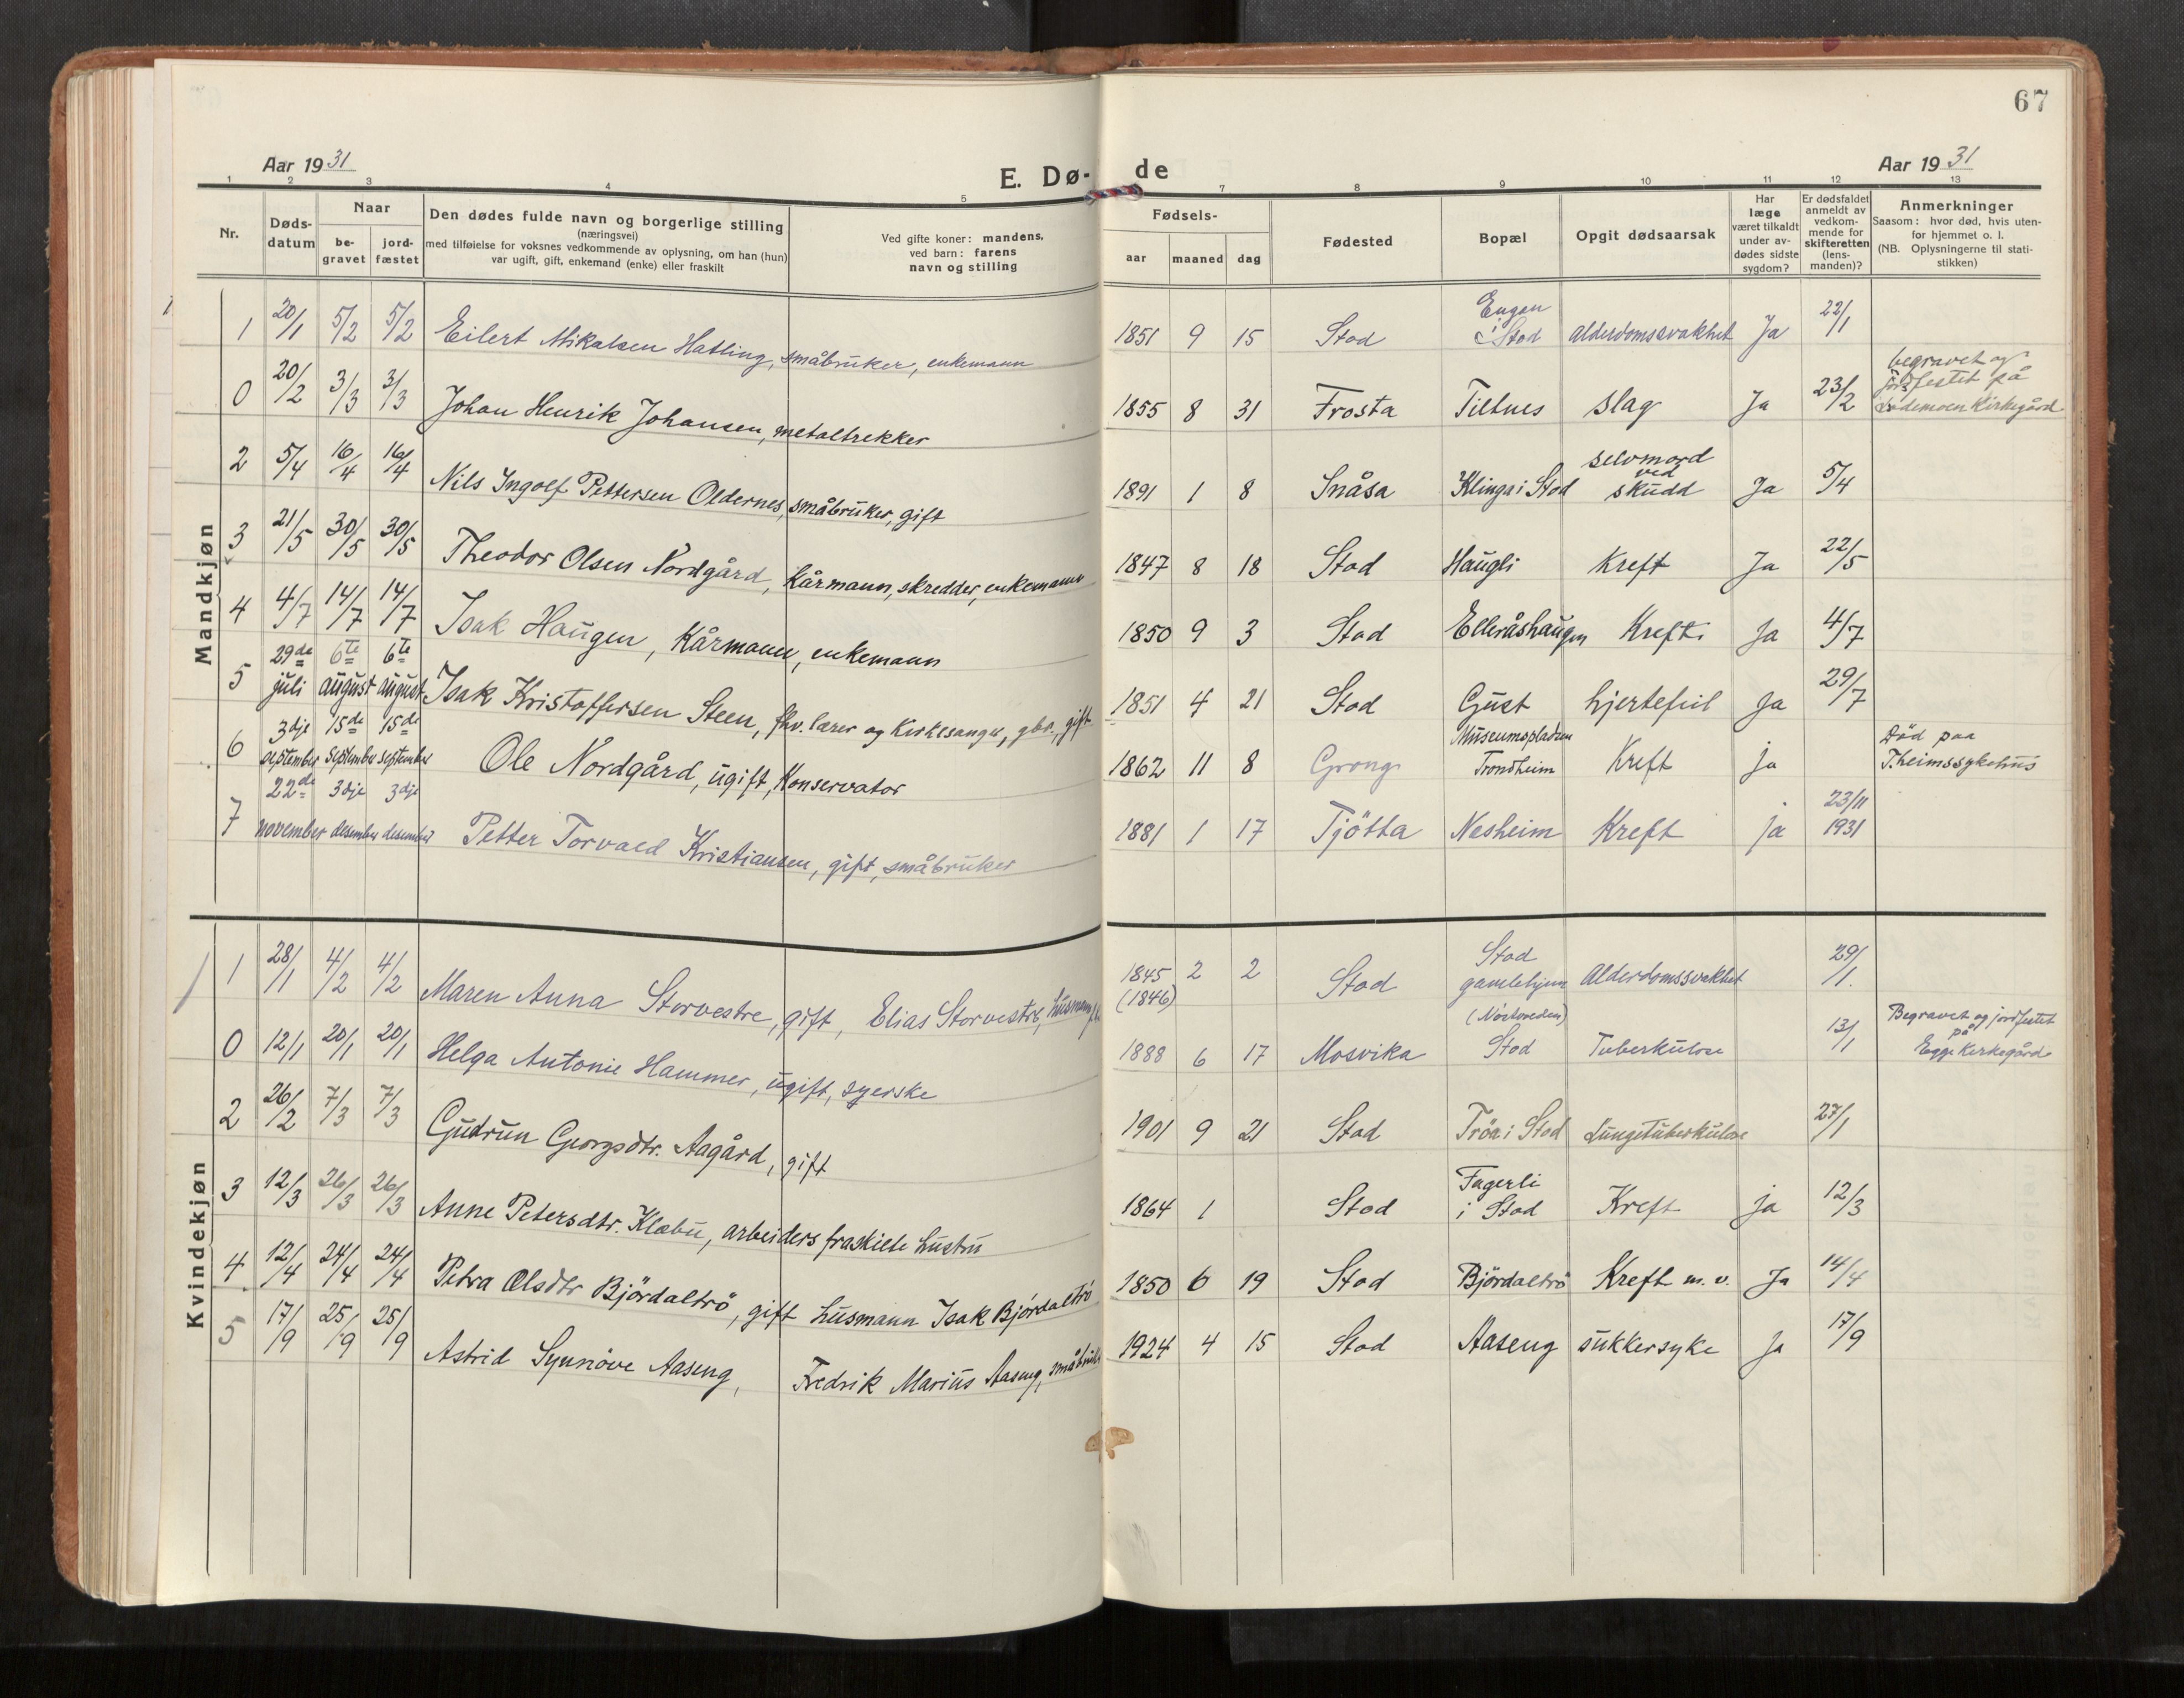 67
Aar 1931
E. Dø-
de
Aar 1931
1 2 3 4 5 7 8 9 10 11 12 13
Nr.
Døds-
datum
Naar
be-
gravet
jord-
fæstet
Den dødes fulde navn og borgerlige stilling
(næringsvei)
med tilføielse for voksnes vedkommende av oplysning, om han (hun)
var ugift, gift, enkemand (enke) eller fraskilt
Ved gifte koner: mandens,
ved barn: farens
navn og stilling
Fødsels-
aar maaned dag
Fødested
Bopæl
Opgit dødsaarsak
Har
læge
været tilkaldt
under av-
dødes sidste
sygdom?
Er dødsfaldet
anmeldt av
vedkom-
mende for
skifteretten
(lens-
manden)?
Anmerkninger
Saasom: hvor død, hvis uten-
for hjemmet o. l.
(NB. Oplysningerne til stati-
stikken)
Mandkjøn
1 20/1 5/2 5/2 Eilert Mikalsen Hatling, småbruker, enkemann 1851 9 15 Stod Engen i Stod Alderdomssvakhet Ja 22/1
0 20/2 3/3 3/3 Johan Henrik Johansen, metaltrekker 1855 8 31 Frosta Tiltnes slag Ja 23/2 begravet og jordfestet på Lademoen Kirkegård
2 5/4 16/4 16/4 Nils Ingolf Pettersen Oldernes, småbruker, gift 1891 1 8 Snåsa Klinga i Stod selvmord ved skudd Ja 5/4
3 21/5 30/5 30/5 Theodor Olsen Nordgård, Kårmann, skredder, enkemann 1847 8 18 Stod Haugli Kreft Ja 22/5
4 4/7 14/7 14/7 Isak Haugen, Kårmann, enkemann 1850 9 3 Stod Elleråshaugen Kreft Ja 4/7
5 29de juli 6te august 6te august Isak Kristoffersen Steen, fhv. lærer og Kirkesanger, gbr., gift 1851 4 21 Stod Gust hjertefeil Ja 29/7
6 3dje september 15de september 15de september Ole Nordgård, ugift, Konservator 1862 11 8 Grong Museumspladsen Trondheim Kreft ja Død paa T.heimssykehus
7 22de november 3dje desember 3dje desember Petter Torvald Kristiansen, gift, småbruker 1881 1 17 Tjötta Nesheim Kreft ja 23/11 1931
Kvindekjøn
1 28/1 4/2 4/2 Maren Anna Storvestre, gift, Elias Storvestre, husmann 1845 (1846) 2 2 Stod Stod gamlehjem Alderdomssvakhet 29/1.
0 12/1 20/1 20/1 Helga Antonie Hammer, ugift, syerske 1888 6 17 Mosvika Stod Tuberkulose 13/1 Begravet og jordfestet på Egge Kirkegård
2 26/2 7/3 7/3 Gudrun Georgsdtr. Aagård, gift 1901 9 21 Stod Tröa i Stod Lungetuberkulose 27/1
3 12/3 26/3 26/3 Anne Petersdtr. Klæbu, arbeiders fraskilte hustru 1864 1 Stod Fagerli i Stod Kreft ja 12/3
4 12/4 24/4 24/4 Petra Olsdtr Björdaltrö, gift husmann Isak Björdaltrö 1850 6 19 Stod Björdaltrö Kreft m. v. Ja 14/4
5 17/9 25/9 25/9 Astrid Synnöve Aaseng, Fredrik Marius Aaseng, småbruker 1924 4 15 Stod Aaseng sukkersyke Ja 17/9